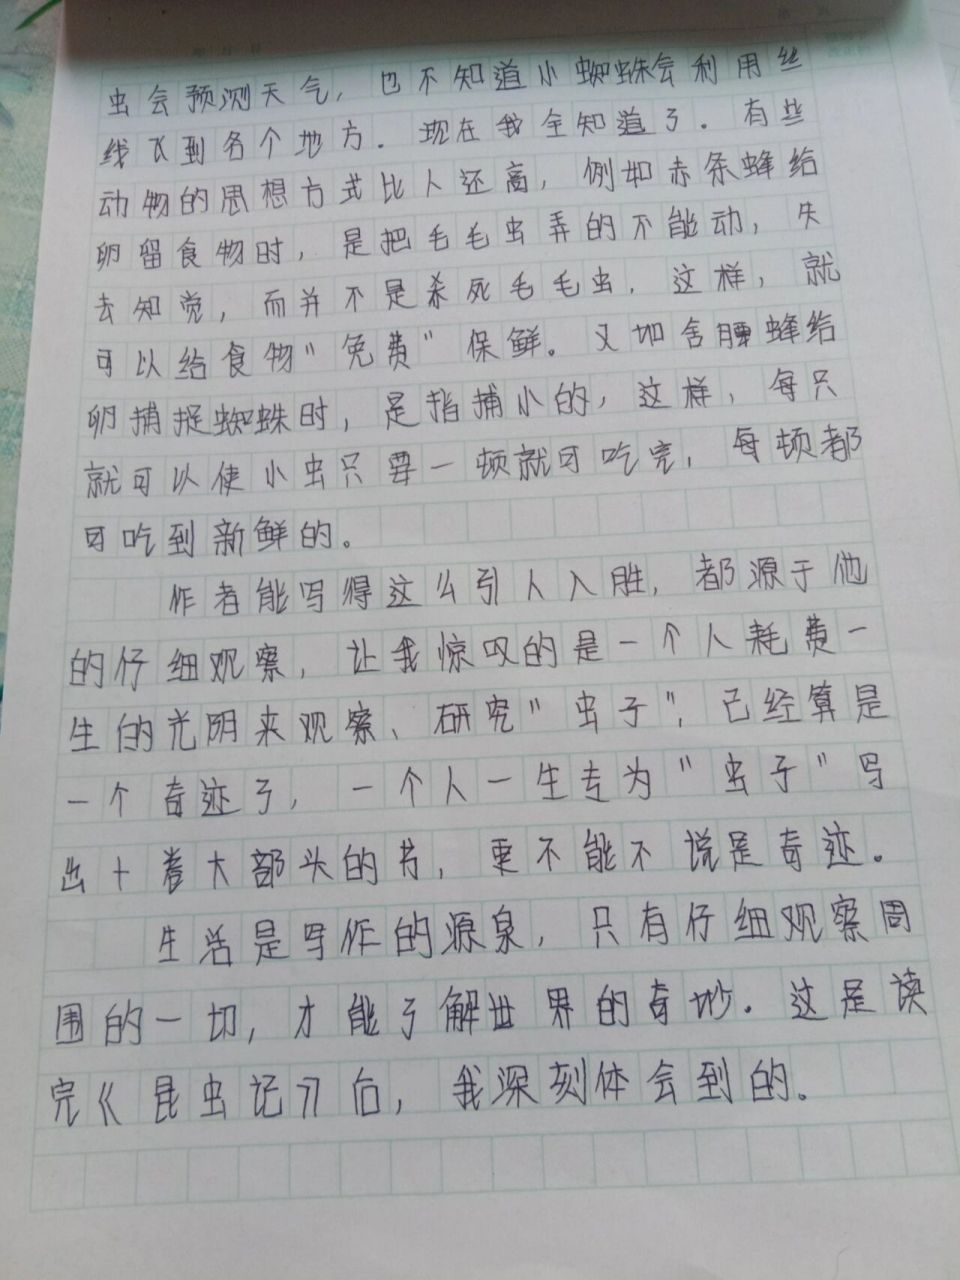 虫会预测天气，也不知道小蜘蛛会利用丝
线飞到各个地方．现在我全知道了．有些
动物的思想方式比人还高，例如赤条蜂给
卵留食物时，是把毛毛虫弄的不能动，失
去知觉，而并不是杀死毛毛虫．这样，就
可以给食物"免费"保鲜。又如含腰蜂给
卵捕捉蜘蛛时，是指捕小的，这样，每只
就可以使小虫只要一顿就可吃完，每顿都
可吃到新鲜的。
作者能写得这么引人入胜，都源于他
的仔细观察，让我惊叹的是一个人耗费一
生的光阴来观察、研究"虫子"，已经算是
一个奇迹了，一个人一生专为"虫子"写
出十卷大部头的书，更不能不说是奇迹。
生活是写作的源泉，只有仔细观察周
围的一切，才能了解世界的奇妙．这是读
完《昆虫记》后，我深刻体会到的。